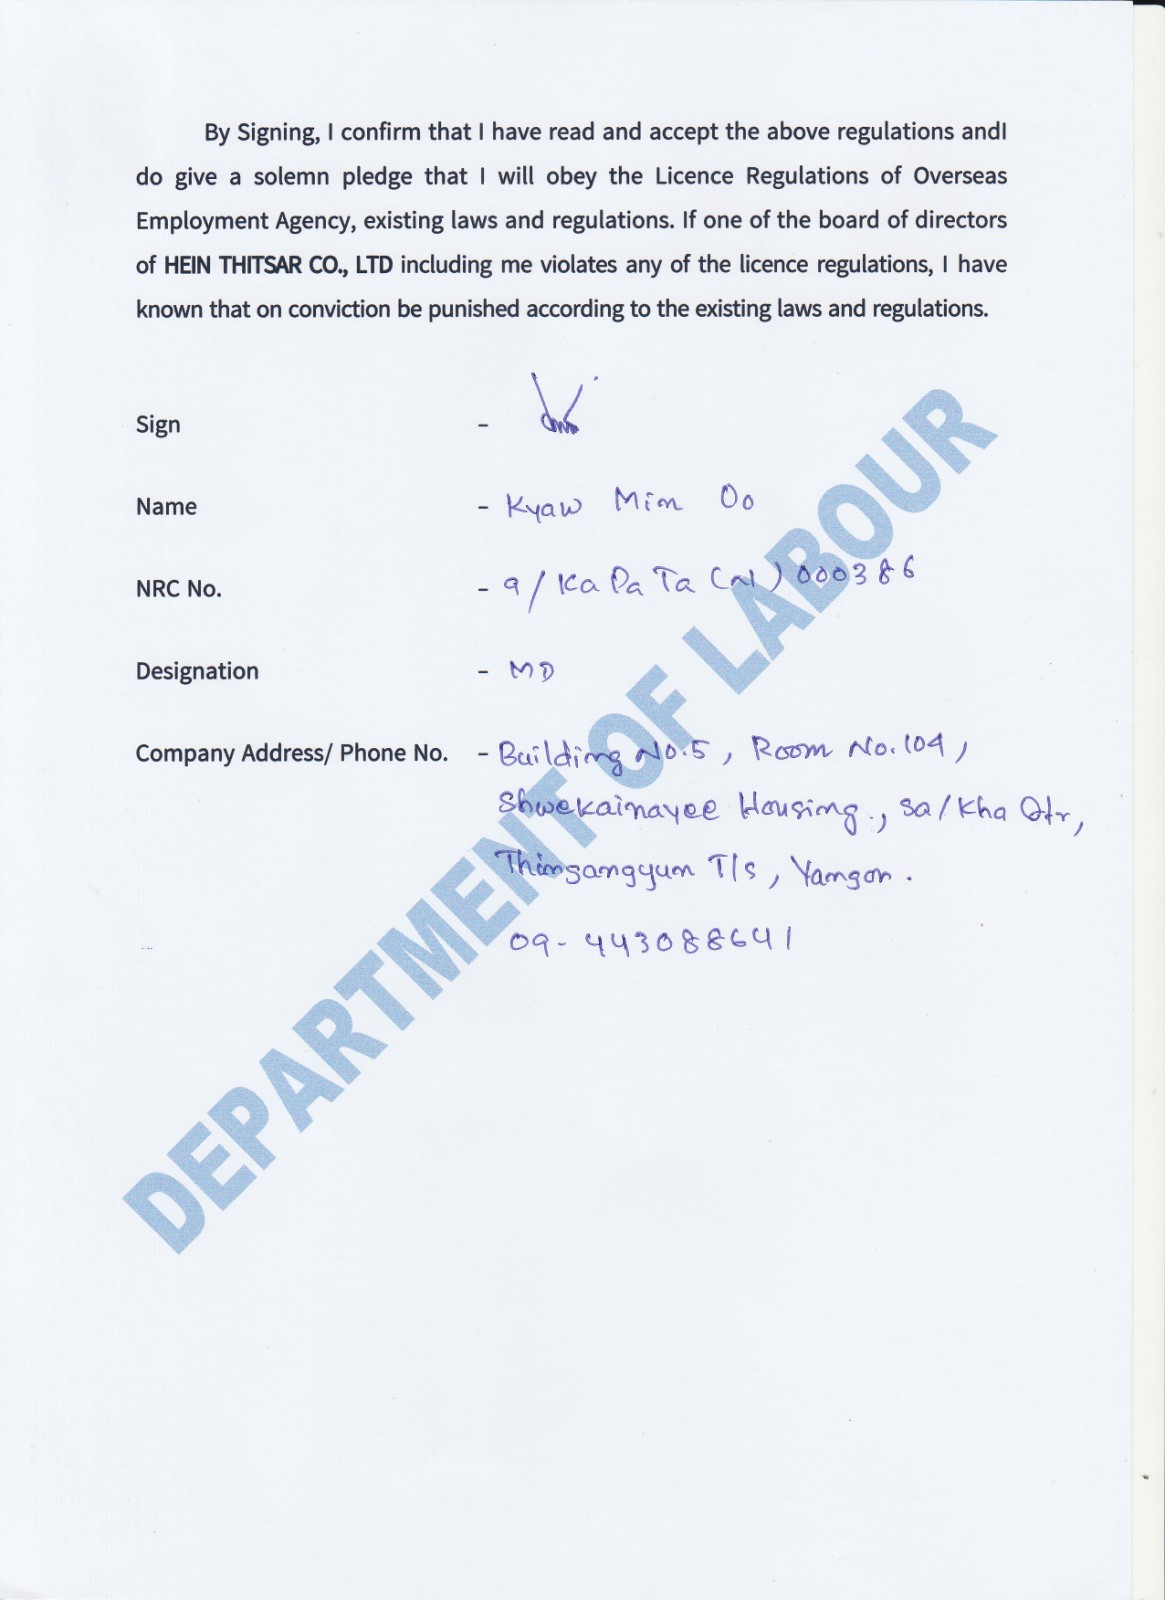 By Signing, I confirm that I have read and accept the above regulations andI
do give a solemn pledge that I will obey the Licence Regulations of Overseas
Employment Agency, existing laws and regulations. If one of the board of directors
of HEIN THITSAR CO., LTD including me violates any of the licence regulations, I have
known that on conviction be punished according to the existing laws and regulations.
Sign -
Name - Kyaw Min Oo
NRC No. - 9/ Ka Pa Ta (N) 000386
Designation - MD
Company Address/ Phone No. - Building No.5, Room No.104,
Shwekainayee Housing., Sa/Kha Qtr,
Thingangyun T/s, Yangon.
09-443088641
DEPARTMENT OF LABOUR